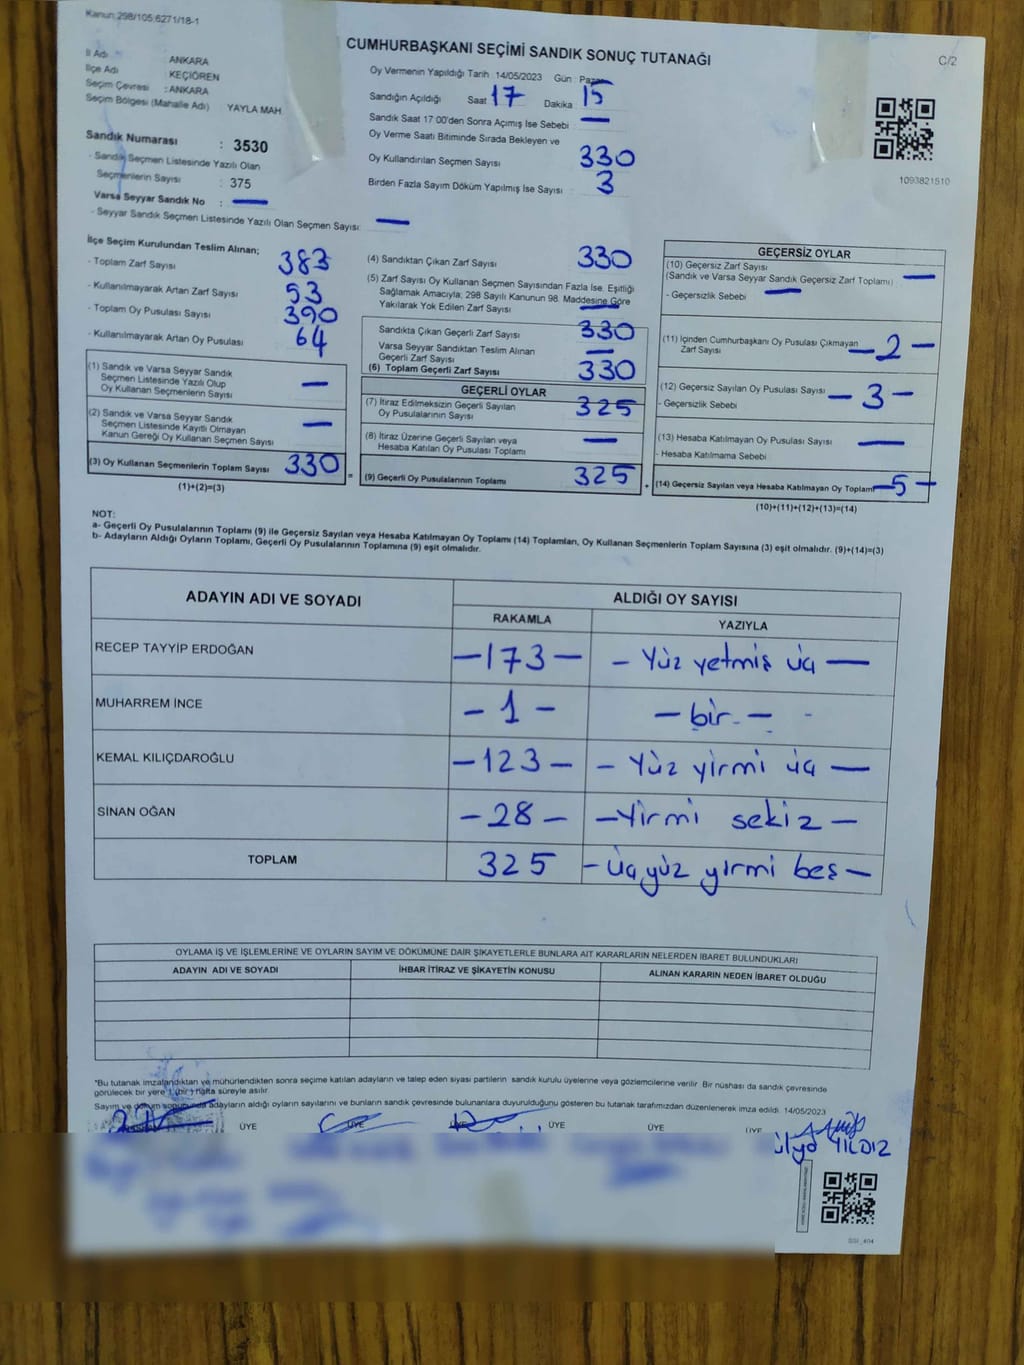 Kanun:298/105,6271/18-1
CUMHURBAŞKANI SEÇİMİ SANDIK SONUÇ TUTANAĞI
C/2
İl Adı ANKARA
İlçe Adı KEÇİÖREN
Seçim Çevresi : ANKARA
Seçim Bölgesi (Mahalle Adı) YAYLA MAH.
Sandık Numarası : 3530
- Sandık Seçmen Listesinde Yazılı Olan
Seçmenlerin Sayısı : 375
Varsa Seyyar Sandık No : —
- Seyyar Sandık Seçmen Listesinde Yazılı Olan Seçmen Sayısı: —
Oy Vermenin Yapıldığı Tarih 14/05/2023 Gün Pazar
Sandığın Açıldığı Saat 17 Dakika 15
Sandık Saat 17:00'den Sonra Açımış İse Sebebi —
Oy Verme Saati Bitiminde Sırada Bekleyen ve
Oy Kullandırılan Seçmen Sayısı 330
Birden Fazla Sayım Döküm Yapılmış İse Sayısı 3
1093821510
İlçe Seçim Kurulundan Teslim Alınan;
- Toplam Zarf Sayısı 383
- Kullanılmayarak Artan Zarf Sayısı 53
- Toplam Oy Pusulası Sayısı 390
- Kullanılmayarak Artan Oy Pusulası 64
(1) Sandık ve Varsa Seyyar Sandık
Seçmen Listesinde Yazılı Olup
Oy Kullanan Seçmenlerin Sayısı —
(2) Sandık ve Varsa Seyyar Sandık
Seçmen Listesinde Kayıtlı Olmayan
Kanun Gereği Oy Kullanan Seçmen Sayısı —
(3) Oy Kullanan Seçmenlerin Toplam Sayısı 330
(1)+(2)=(3)
=
(4) Sandıktan Çıkan Zarf Sayısı 330
(5) Zarf Sayısı Oy Kullanan Seçmen Sayısından Fazla İse, Eşitliği
Sağlamak Amacıyla; 298 Sayılı Kanunun 98. Maddesine Göre
Yakılarak Yok Edilen Zarf Sayısı —
Sandıkta Çıkan Geçerli Zarf Sayısı 330
Varsa Seyyar Sandıktan Teslim Alınan
Geçerli Zarf Sayısı —
(6) Toplam Geçerli Zarf Sayısı 330
GEÇERLİ OYLAR
(7) İtiraz Edilmeksizin Geçerli Sayılan
Oy Pusulalarının Sayısı 325
(8) İtiraz Üzerine Geçerli Sayılan veya
Hesaba Katılan Oy Pusulası Toplamı —
(9) Geçerli Oy Pusulalarının Toplamı 325
+
GEÇERSİZ OYLAR
(10) Geçersiz Zarf Sayısı
(Sandık ve Varsa Seyyar Sandık Geçersiz Zarf Toplamı) —
- Geçersizlik Sebebi —
(11) İçinden Cumhurbaşkanı Oy Pusulası Çıkmayan
Zarf Sayısı — 2 —
(12) Geçersiz Sayılan Oy Pusulası Sayısı — 3 —
- Geçersizlik Sebebi
(13) Hesaba Katılmayan Oy Pusulası Sayısı —
- Hesaba Katılmama Sebebi
(14) Geçersiz Sayılan veya Hesaba Katılmayan Oy Toplamı — 5 —
(10)+(11)+(12)+(13)=(14)
NOT:
a- Geçerli Oy Pusulalarının Toplamı (9) ile Geçersiz Sayılan veya Hesaba Katılmayan Oy Toplamı (14) Toplamları, Oy Kullanan Seçmenlerin Toplam Sayısına (3) eşit olmalıdır. (9)+(14)=(3)
b- Adayların Aldığı Oyların Toplamı, Geçerli Oy Pusulalarının Toplamına (9) eşit olmalıdır.
ADAYIN ADI VE SOYADI ALDIĞI OY SAYISI
RAKAMLA YAZIYLA
RECEP TAYYİP ERDOĞAN —173— — Yüz yetmiş üç —
MUHARREM İNCE — 1 — — bir — -
KEMAL KILIÇDAROĞLU —123— — Yüz yirmi üç —
SİNAN OĞAN — 28 — — Yirmi sekiz —
TOPLAM 325 — Üçyüz yirmi beş —
OYLAMA İŞ VE İŞLEMLERİNE VE OYLARIN SAYIM VE DÖKÜMÜNE DAİR ŞİKAYETLERLE BUNLARA AİT KARARLARIN NELERDEN İBARET BULUNDUKLARI
ADAYIN ADI VE SOYADI İHBAR İTİRAZ VE ŞİKAYETİN KONUSU ALINAN KARARIN NEDEN İBARET OLDUĞU
*Bu tutanak imzalandıktan ve mühürlendikten sonra seçime katılan adayların ve talep eden siyasi partilerin sandık kurulu üyelerine veya gözlemcilerine verilir. Bir nüshası da sandık çevresinde
görülecek bir yere 1 (bir) hafta süreyle asılır.
Sayım ve döküm sonucunda adayların aldığı oyların sayılarını ve bunların sandık çevresinde bulunanlara duyurulduğunu gösteren bu tutanak tarafımızdan düzenlenerek imza edildi. 14/05/2023
ÜYE ÜYE ÜYE ÜYE ÜYE ÜYE
YILDIZ